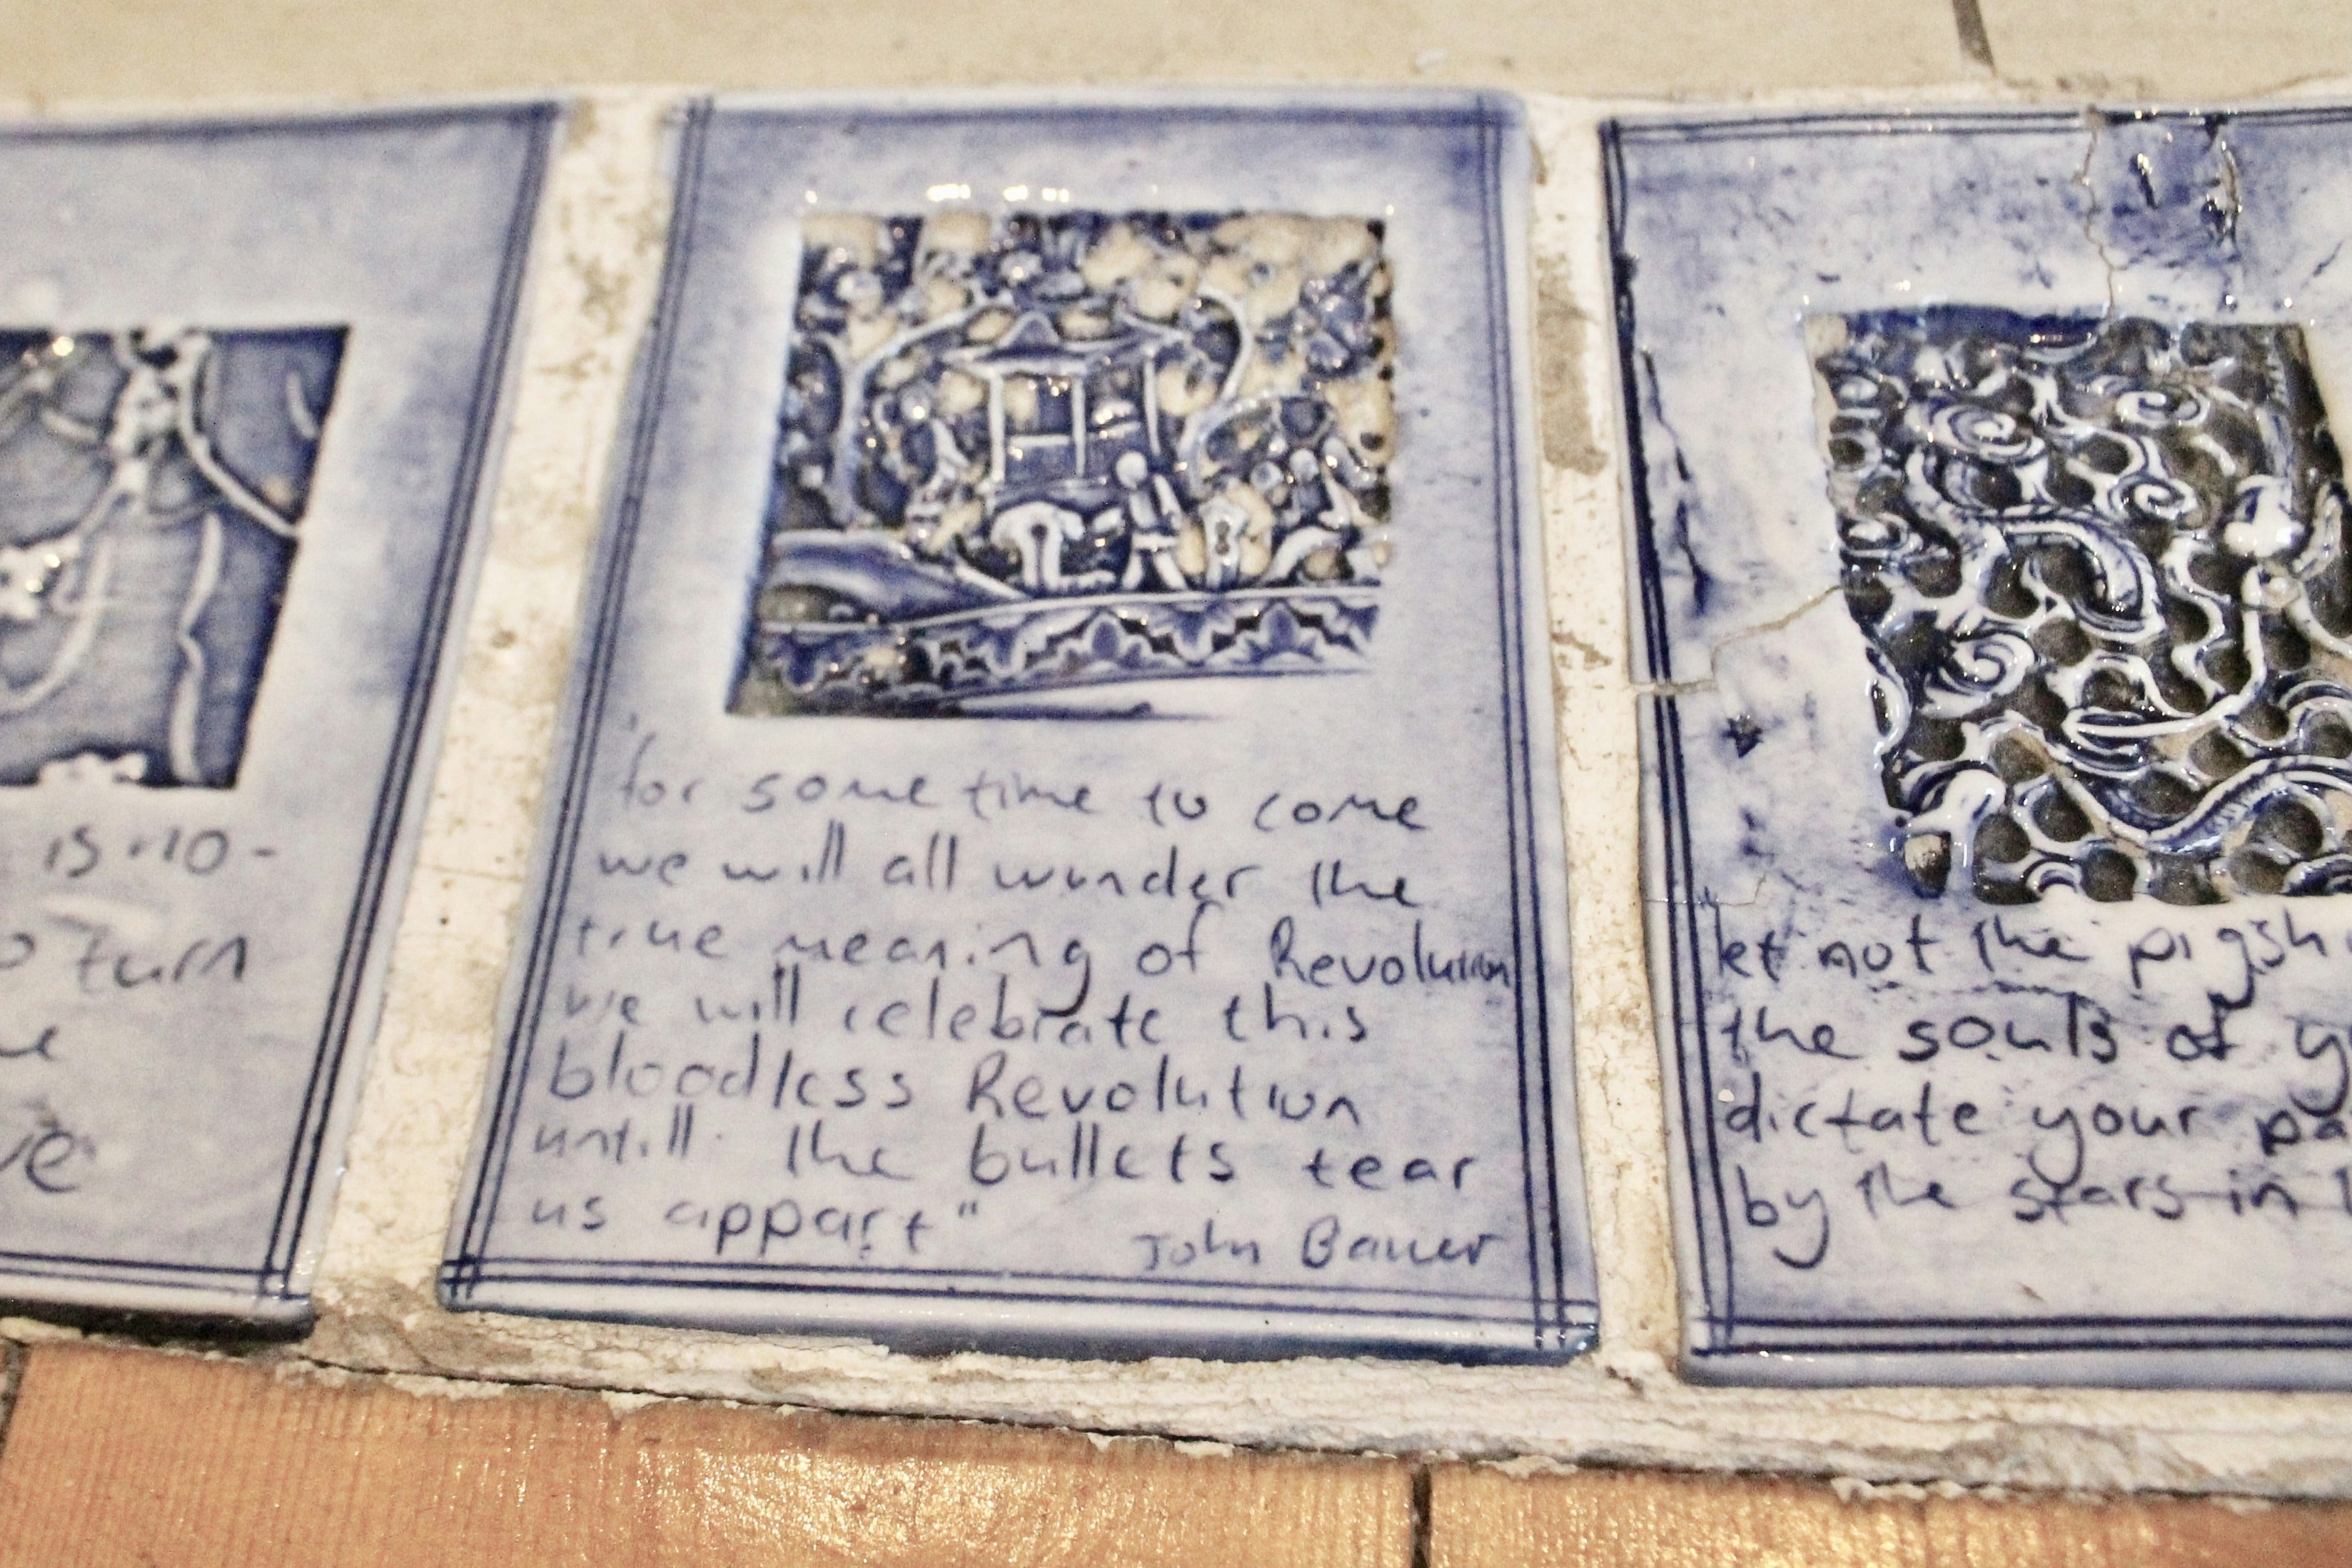 is no-
turn
ve
"for some time to come
we will all wonder the
true meaning of Revolution
we will celebrate this
bloodless Revolution
untill the bullets tear
us appart"
John Bauer
let not the pigsh
the souls of
dictate your pa
by the stars in